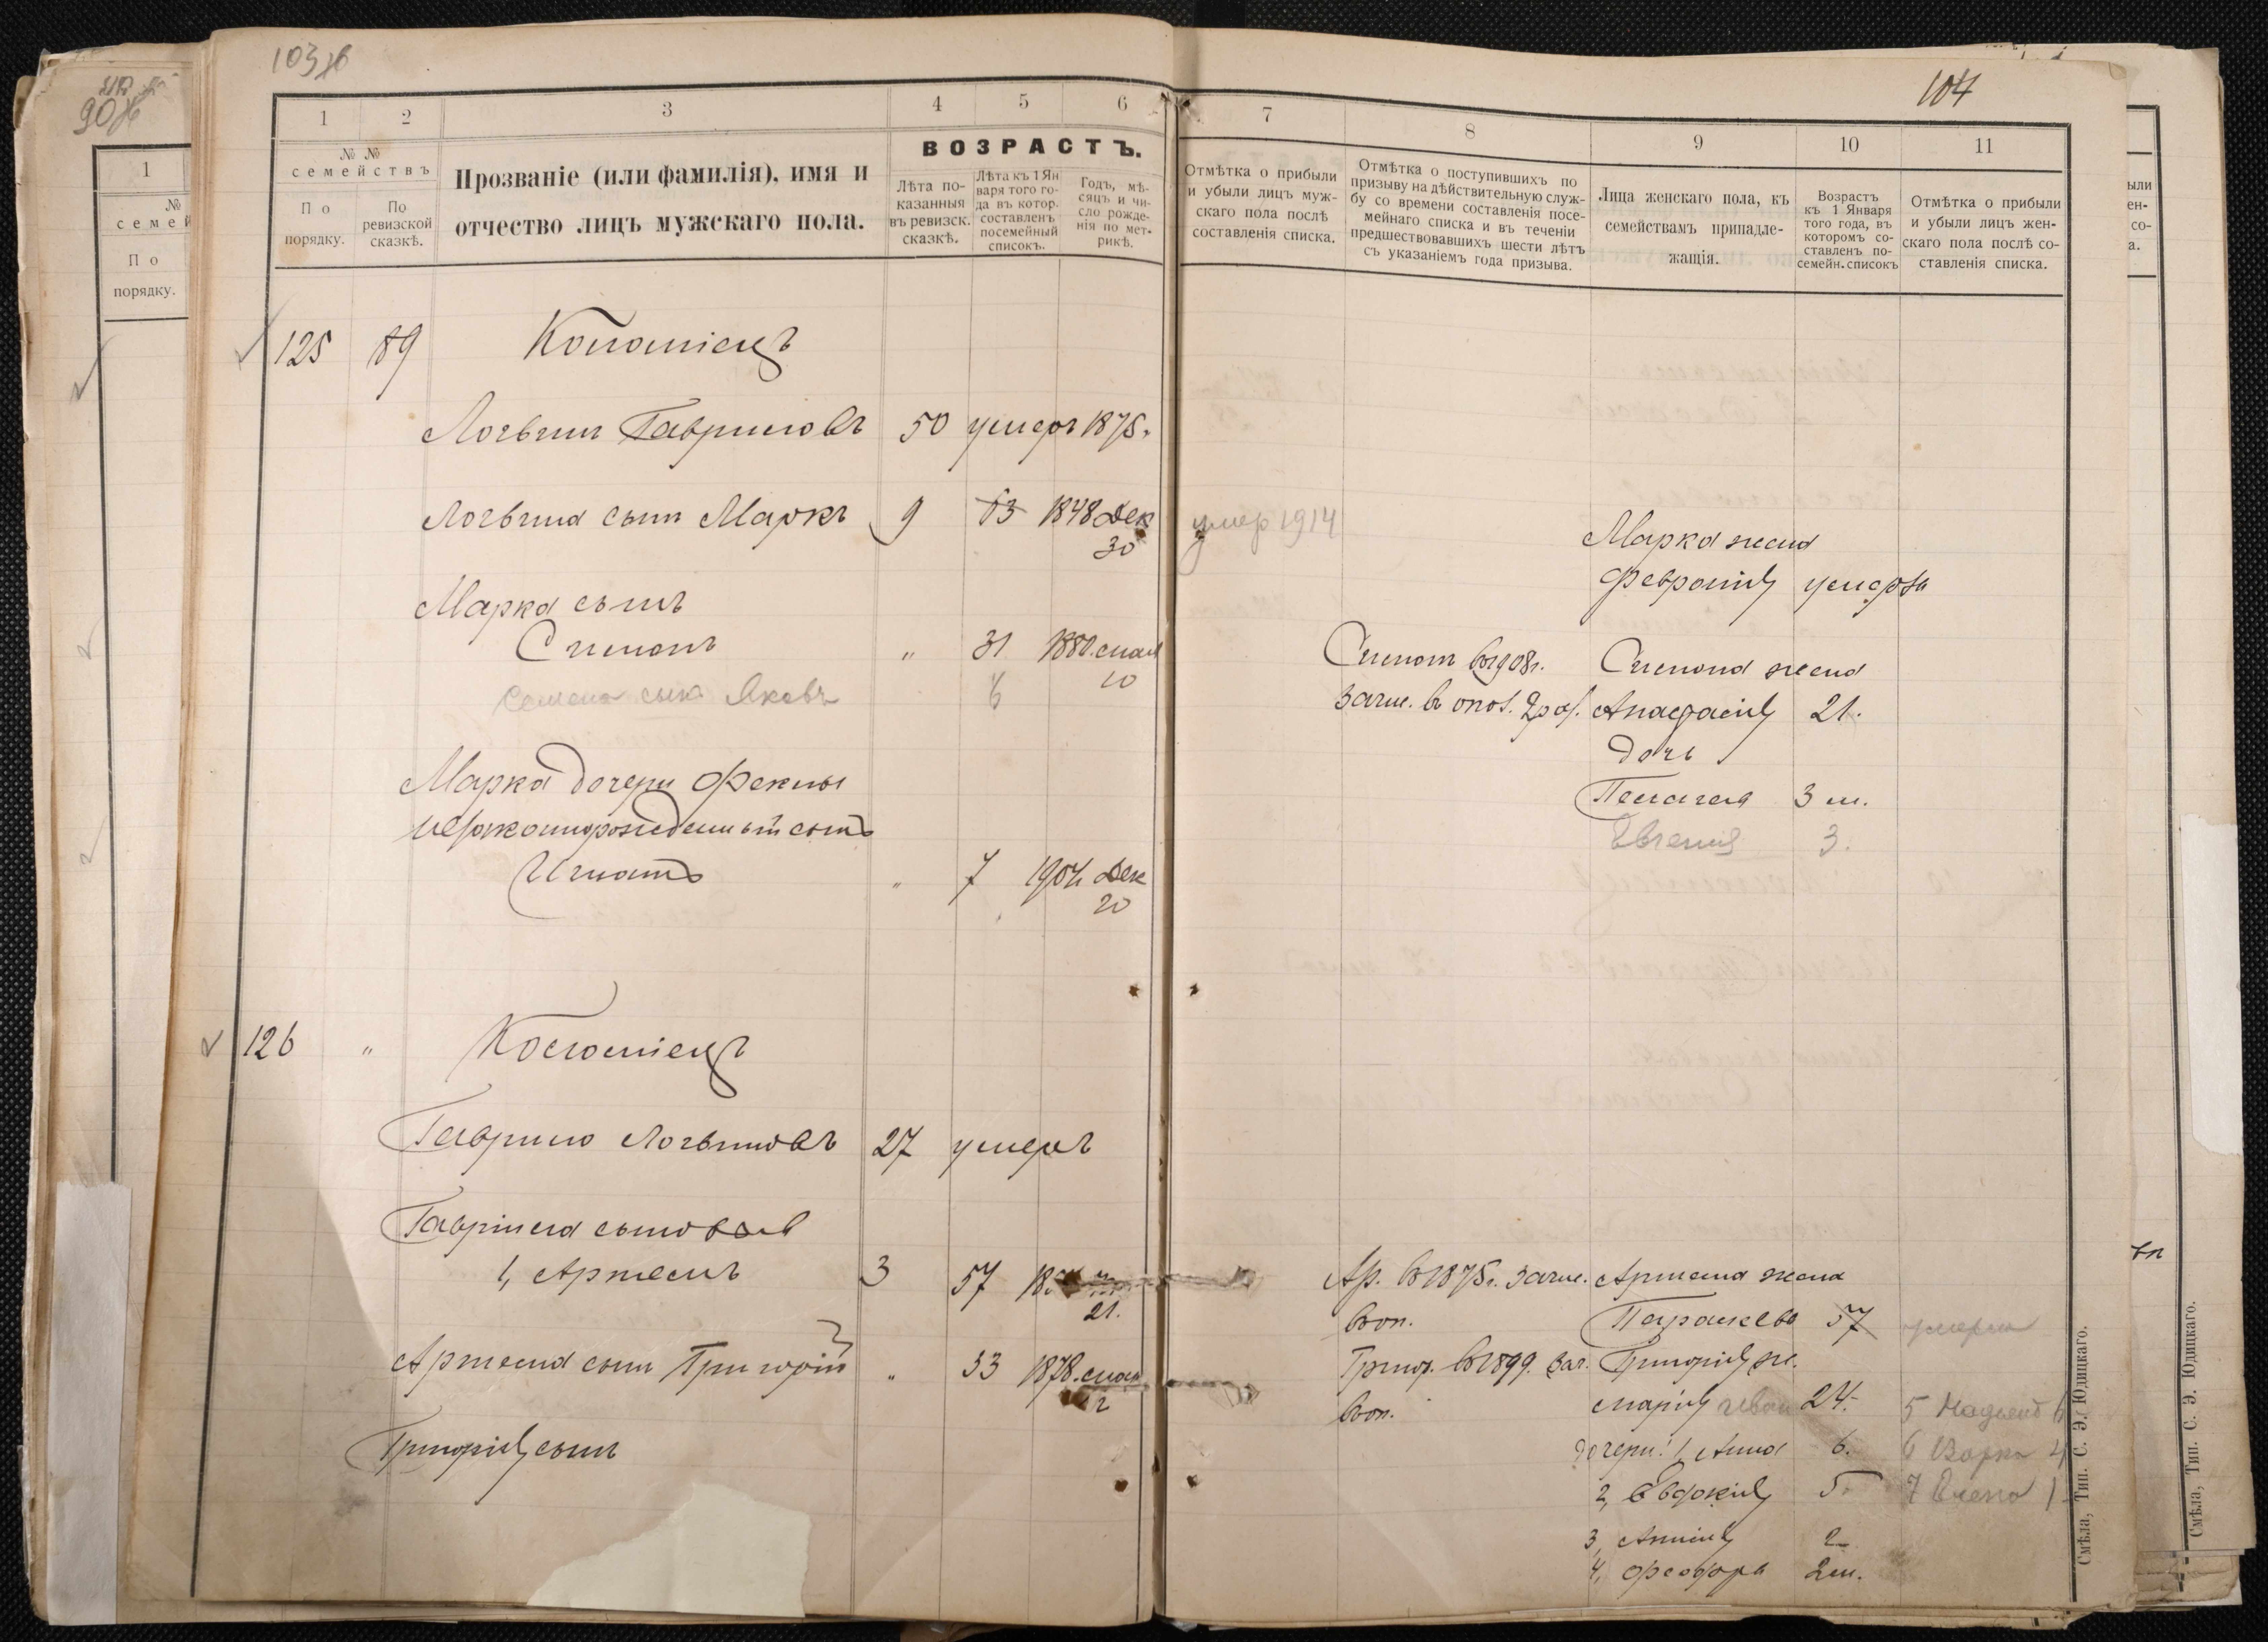 103об
104
1 2 3 4 5 6
№ №
семействъ
По
порядку.
По
ревизской
сказкѣ.
Прозваніе (или фамилія), имя и
отчество лицъ мужскаго пола.
ВОЗРАСТЪ.
Лѣта по-
казанныя
въ ревизск.
сказкѣ.
Лѣта къ 1 Ян
варя того го-
да въ котор.
составленъ
посемейный
списокъ.
Годъ, мѣ-
сяцъ и чи-
сло рожде-
нія по мет-
рикѣ.
7 8 9 10 11
Отмѣтка о прибыли
и убыли лицъ муж-
скаго пола послѣ
составленія списка.
Отмѣтка о поступившихъ по
призыву на дѣйствительную служ-
бу со времени составленія посе-
мейнаго списка и въ теченіи
предшествовавшихъ шести лѣтъ
съ указаніемъ года призыва.
Лица женскаго пола, къ
семействамъ принадле-
жащія.
Возрастъ
къ 1 Января
того года, въ
которомъ со-
ставленъ по-
семейн. списокъ
Отмѣтка о прибыли
и убыли лицъ жен-
скаго пола послѣ со-
ставленія списка.
125 89
Логвинъ Гавриловъ 50 умеръ 1875.
Логвина сынъ Маркъ 9 63 1848 Дек
30
умер 1914
Марка жена
Феvронія умерла
Марка сынъ
Симонъ " 31 1880. мая
10
Симон в 1908г.
Симона жена
Семена сын Яковъ 6
Анастасія 21.
дочь
Пелагея 3 м.
Евгенія 3.
Марка дочери Феклы
незаконнорожденный сынъ
Игнатъ " 7 1904 Дек
20
126 "
Гаврило Логвиновъ 27 умеръ
Гавріила сыновья
1, Артемъ 3 57
21.
Ар. в 1875г. зачис.
воп.
Артема жена
Параскева 57 умерла
Артема сынъ Григорій " 33 1878. мая
2
Григор. в 1899. зач.
воп.
Григорія ж.
Марія 24.
Григорія сынъ
дочери: 1, Анна 6.
2, Евдокія 5.
3,
2
4, Феодора 2 м.
6 Варка 4
7 Елена 1
Смѣла, Тип. С. Э. Юдицкаго.
1
№
семей
По
порядку.
Смѣла, Тип. С. Э. Юдицкаго.